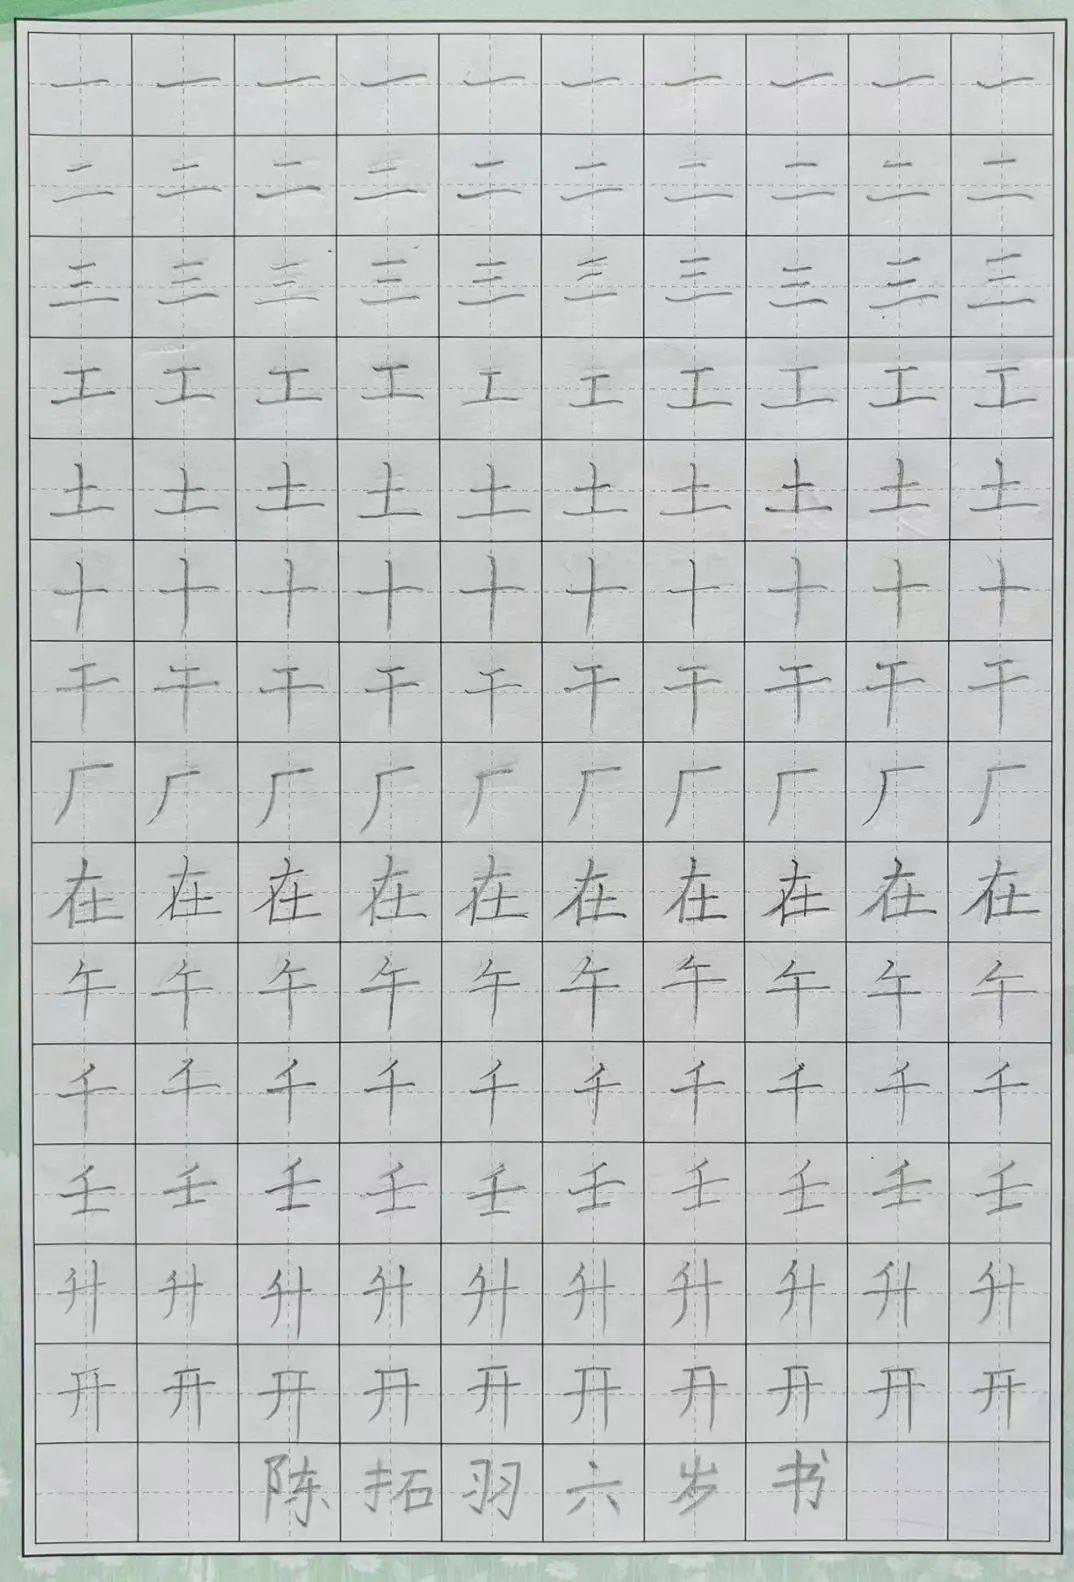 一一一一一一一一一一
二二二二二二二二二二
三三三三三三三三三三
工工工工工工工工工工
土土土土土土土土土土
十十十十十十十十十十
干干干干干干干干干干
厂厂厂厂厂厂厂厂厂厂
在在在在在在在在在在
午午午午午午午午午午
千千千千千千千千千千
壬壬壬壬壬壬壬壬壬壬
升升升升升升升升升升
开开开开开开开开开开
陈拓羽六岁书